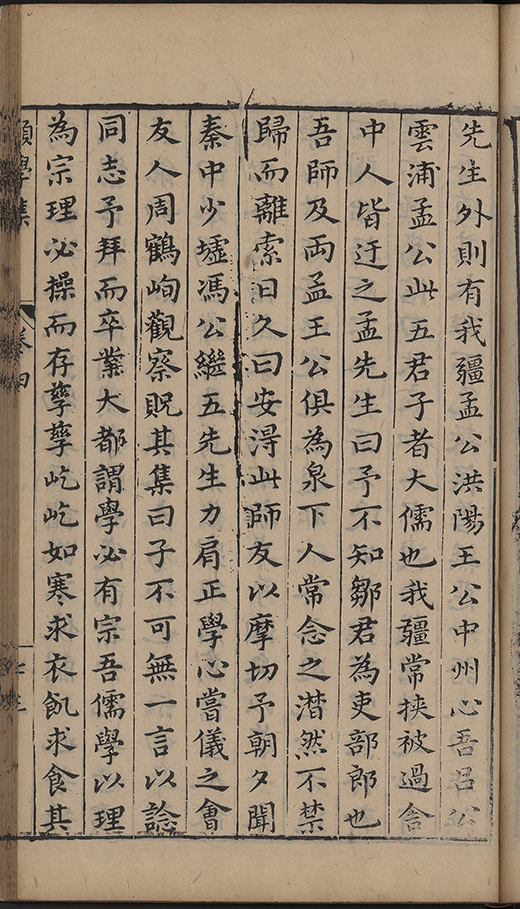 先生外則有我疆孟公洪陽王公中州心吾呂公
雲浦孟公此五君子者大儒也我疆常挾被過舍
中人皆迂之孟先生曰予不知鄒君為吏部郎也
吾師及兩孟王公俱為泉下人常念之潸然不禁
歸而離索日久曰安淂此師友以摩切予朝夕聞
秦中少墟馮公繼五先生力肩正學心嘗儀之會
友人周鶴峋觀察貺其集曰子不可無一言以諗
同志予拜而卒業大都謂學必有宗吾儒學以理
為宗理必操而存孳孳屹屹如寒求衣飢求食其
願學集 卷四